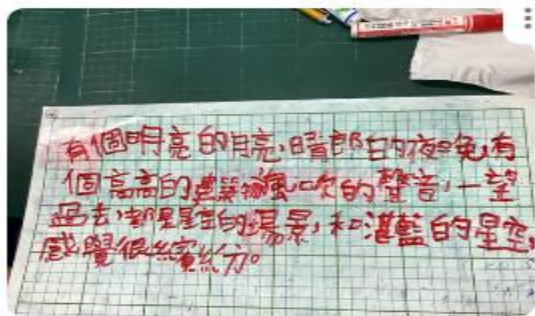 有個明亮的月亮,晴朗的夜晚,有
個高高的建築物風吹的聲音,一望
過去,都是星空的場景,和湛藍的星空,
感覺很繽紛。